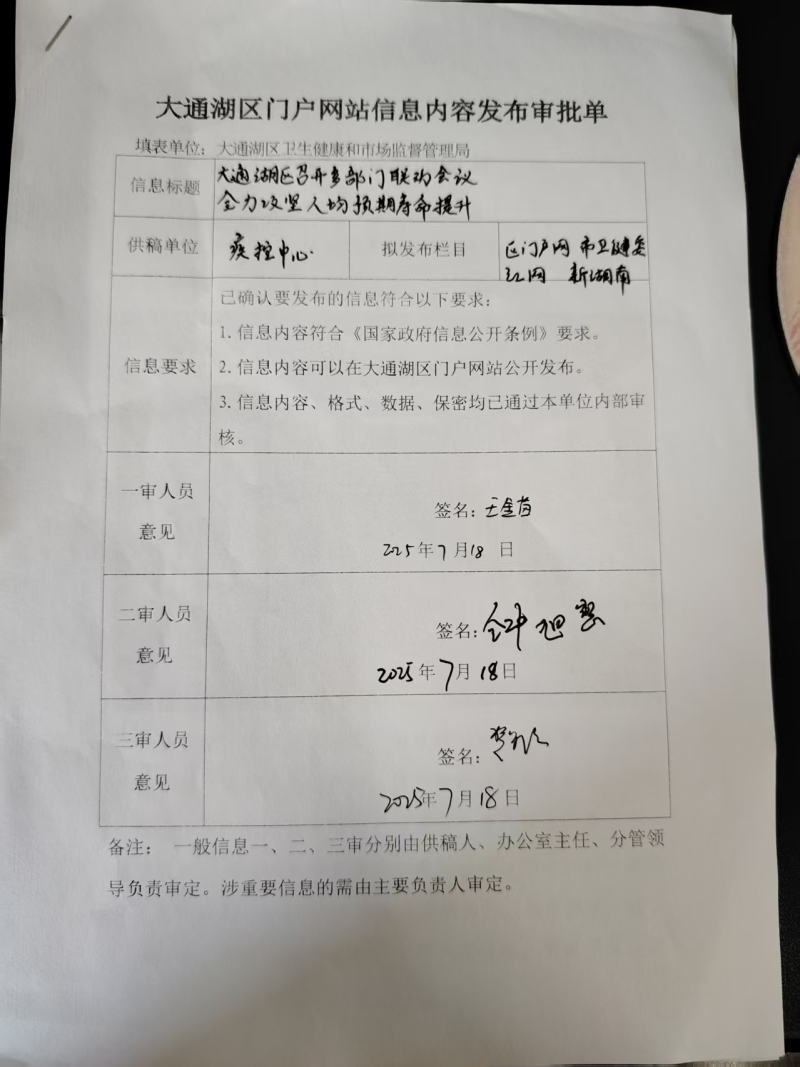 大通湖区门户网站信息内容发布审批单
填表单位：大通湖区卫生健康和市场监督管理局
信息标题
大通湖区召开多部门联动会议
全力攻坚人均预期寿命提升
供稿单位
疾控中心
拟发布栏目
区门户网 市卫健委
红网 新湖南
信息要求
已确认要发布的信息符合以下要求：
1. 信息内容符合《国家政府信息公开条例》要求。
2. 信息内容可以在大通湖区门户网站公开发布。
3. 信息内容、格式、数据、保密均已通过本单位内部审
核。
一审人员
意见
签名：
2025年7月18 日
二审人员
意见
签名：
2025年7月18日
三审人员
意见
签名：
2025年7月18日
备注： 一般信息一、二、三审分别由供稿人、办公室主任、分管领
导负责审定。涉重要信息的需由主要负责人审定。